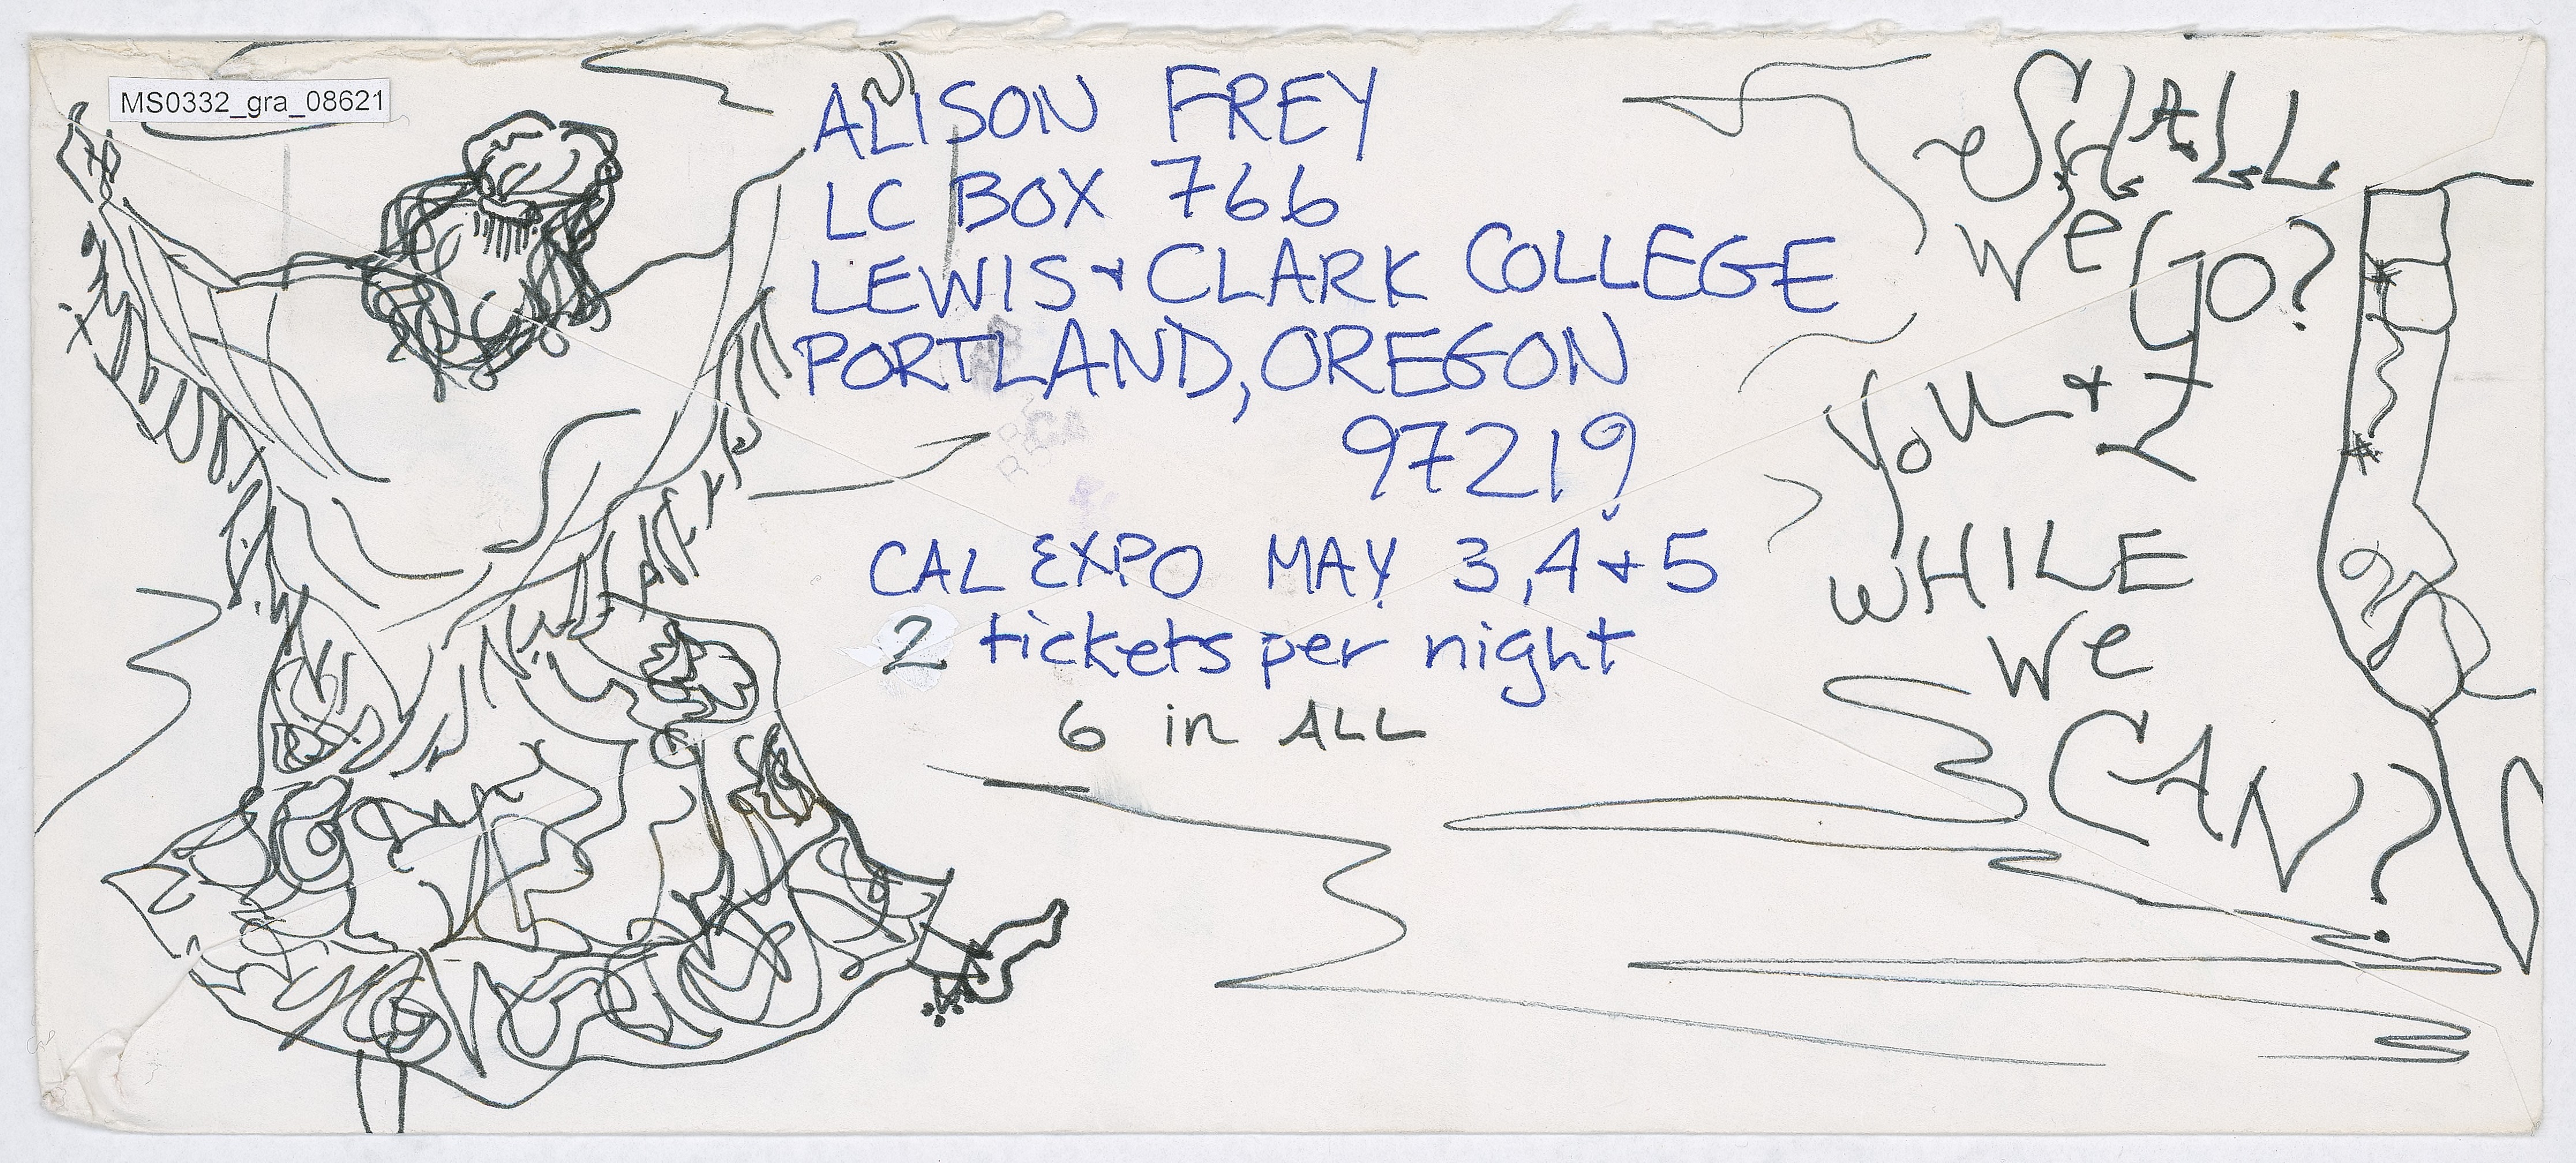 MS0332_gra_08621
ALISON FREY
LC BOX 766
LEWIS + CLARK COLLEGE
PORTLAND, OREGON
97219
CAL EXPO MAY 3, 4 + 5
2 tickets per night
6 in ALL
SHALL
We GO?
YOU + I
WHILE
We
CAN?